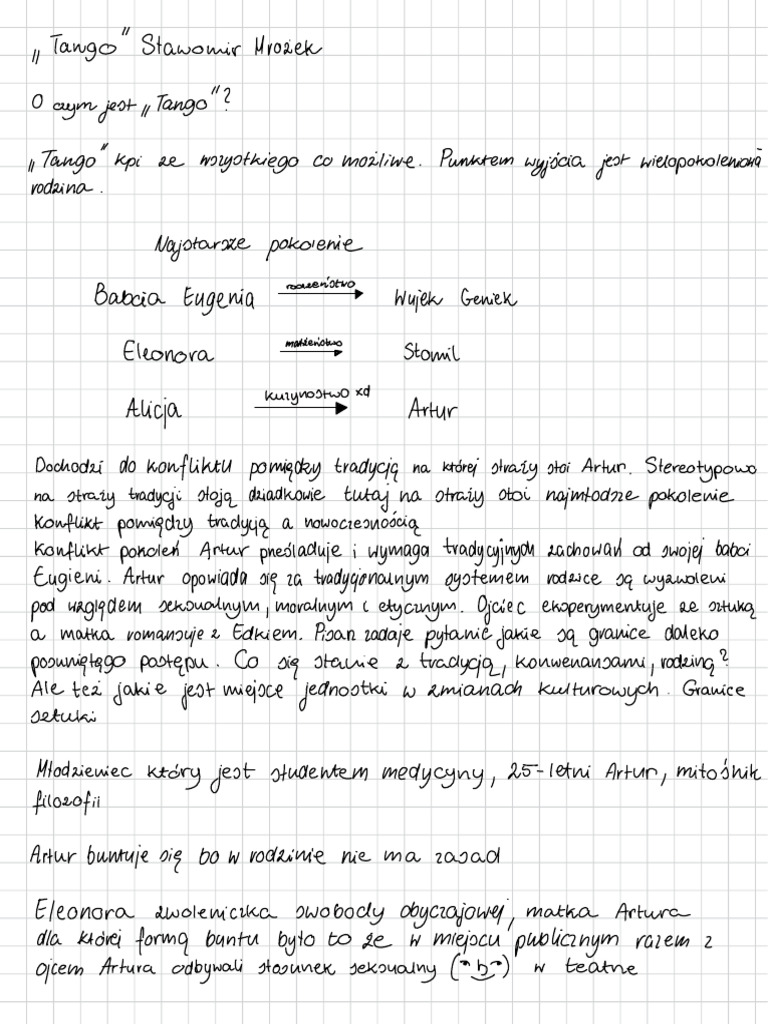 „Tango” Sławomir Mrożek
O czym jest „Tango”?
„Tango” kpi ze wszystkiego co możliwe. Punktem wyjścia jest wielopokoleniowa
rodzina.
Najstarsze pokolenie
Babcia Eugenia rodzeństwo Wujek Geniek
Eleonora małżeństwo Stomil
Alicja kuzynostwo xd Artur
Dochodzi do konfliktu pomiędzy tradycją na której straży stoi Artur. Stereotypowo
na straży tradycji stoją dziadkowie tutaj na straży stoi najmłodsze pokolenie
Konflikt pomiędzy tradycją a nowoczesnością
Konflikt pokoleń Artur prześladuje i wymaga tradycyjnych zachowań od swojej babci
Eugieni. Artur opowiada się za tradycjonalnym systemem rodzice są wyzwoleni
pod względem seksualnym, moralnym i etycznym. Ojciec eksperymentuje ze sztuką
a matka romansuje z Edkiem. Pisarz zadaje pytanie jakie są granice daleko
posuniętego postępu. Co się stanie z tradycją, konwenansami, rodziną?
Ale też jakie jest miejsce jednostki w zmianach kulturowych. Granice
sztuki
Młodzieniec który jest studentem medycyny, 25-letni Artur, miłośnik
filozofii
Artur buntuje się bo w rodzinie nie ma zasad
Eleonora zwoleniczka swobody obyczajowej, matka Artura
dla której formą buntu było to że w miejscu publicznym razem z
ojcem Artura odbywali stosunek seksualny w teatrze